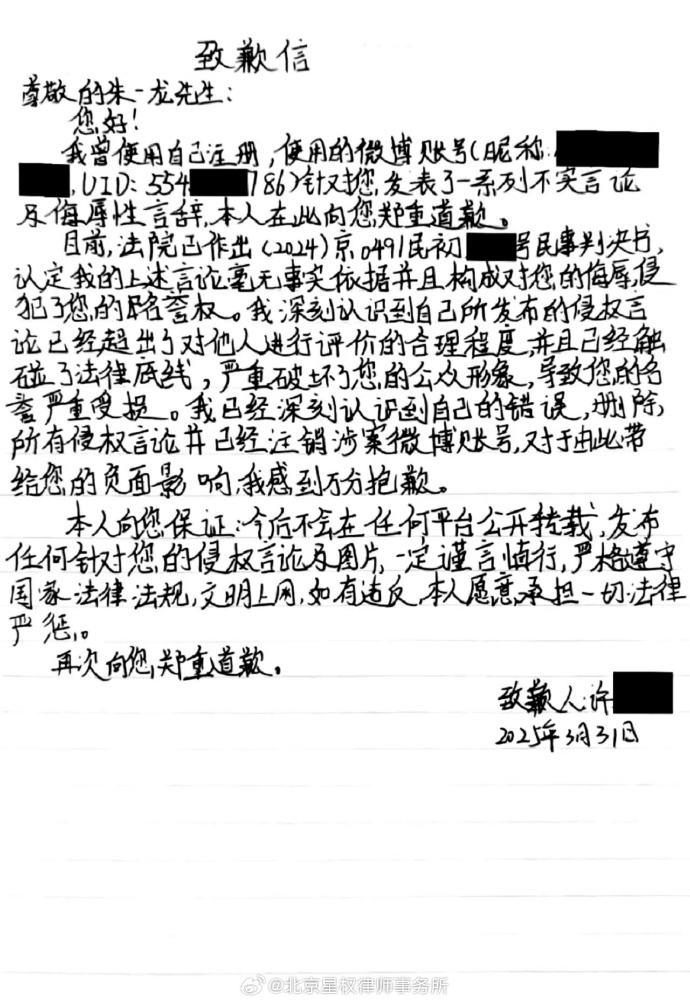 致歉信
尊敬的朱一龙先生:
您好!
我曾使用自己注册,使用的微博账号(昵称:
,UID:554 786)针对您,发表了一系列不实言论
及侮辱性言辞,本人在此向您郑重道歉。
目前,法院已作出(2024)京0491民初 号民事判决书,
认定我的上述言论毫无事实依据并且构成对您的侮辱,侵
犯了您的名誉权。我深刻认识到自己所发布的侵权言
论已经超出了对他人进行评价的合理程度,并且已经触
碰了法律底线,严重破坏了您的公众形象,导致您的名
誉严重受损。我已经深刻认识到自己的错误,删除,
所有侵权言论并已经注销涉案微博账号,对于由此带
给您的负面影响,我感到万分抱歉。
本人向您保证:今后不会在任何平台公开转载,发布
任何针对您的侵权言论及图片,一定谨言慎行,严格遵守
国家法律法规,文明上网,如有违反,本人愿意承担一切法律
严惩。
再次向您郑重道歉。
致歉人:许
2025年3月31日
@北京星权律师事务所